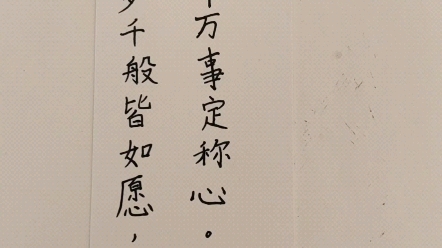 千般皆如愿，
万事定称心。